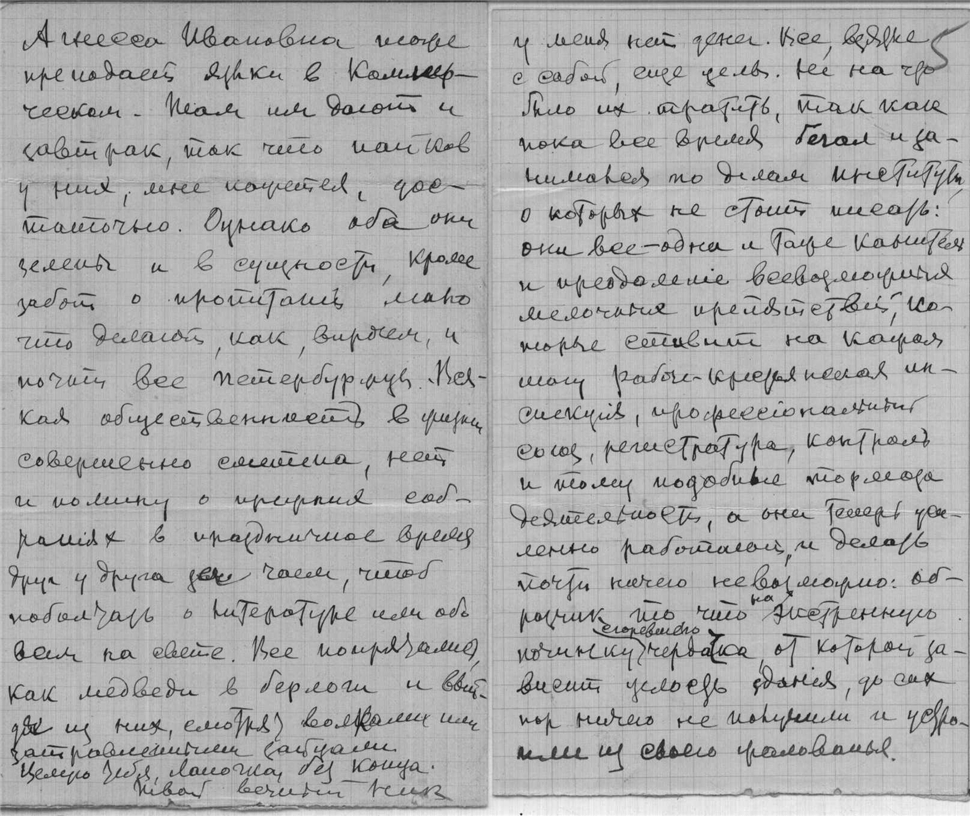 Агнесса Ивановна тоже
преподает языки в Коммер-
ческом. Там им дают и
завтрак, так что пайков
у них, мне кажется, дос-
таточно. Однако оба они
зелены и в сущности, кроме
забот о пропитаніи мало
что делают, как, впрочем, и
почти все петербуржцы. Вся-
кая общественность в жизни
совершенно сметена, нет
и помину о прежних соб-
раніях в праздничное время
друг у друга за чаем, чтоб
поболтать о литературе или обо
всем на свете. Все попрятались,
как медведи в берлоги и вый-
дя из них, смотрят волками или
затравленными зайцами.
Целую тебя, лапочка, без конца.
Твой вечный Ник
5
у меня нет денег. Все, взятые
с собой, еще целы. Не на что
было их тратить, так как
пока все время бегал и за-
нимался по делам института,
о которых не стоит писать:
они все – одна и таже канитель
и преодоленіе всевозможных
мелочных препятствий, ко-
торые ставит на каждом
шагу рабоче-крестьянская ин-
спекція, профессіональный
союз, регистратура, контроль
и тому подобные тормоза
деятельности, а они теперь уси-
ленно работают, и делать
почти ничего невозможно: об-
разчик то что на экстренную
починку сгоревшего чердака, от которой за-
висит целость зданія, до сих
пор ничего не получили и устро-
или из своего жалованья.